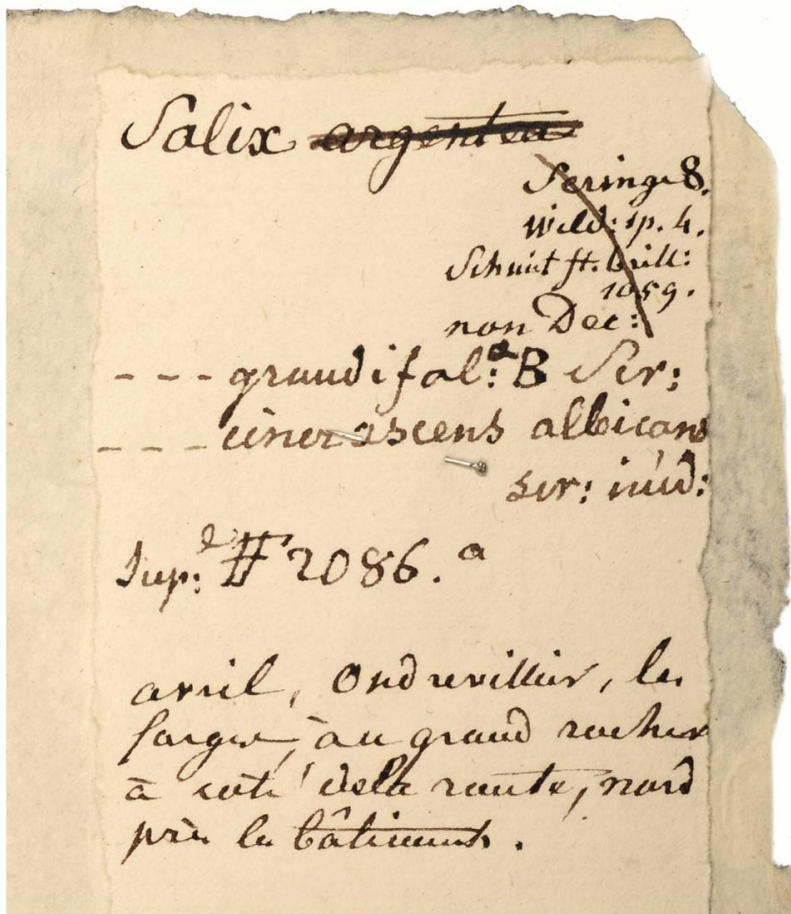 Salix argentea
Seringe 8.
Willd: sp. 4.
non Dec:
--- grandifol:a B Ser:
--- cinerascens albicans
ser: inéd:
Sup:e # 2086.a
avril, Ondrevillier, les
forges, au grand rocher
à coté de la route, nord
près les bâtiments.